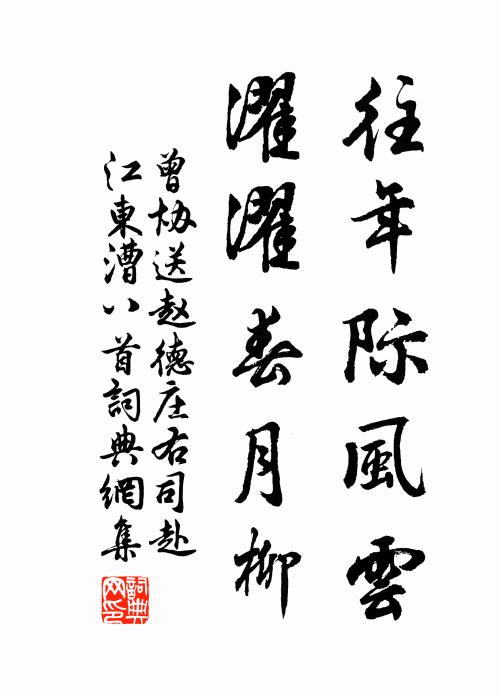 往年际風雲
濯濯春月柳
曾协送赵德庄右司赴
江東漕八首詞典網集
詞典网印